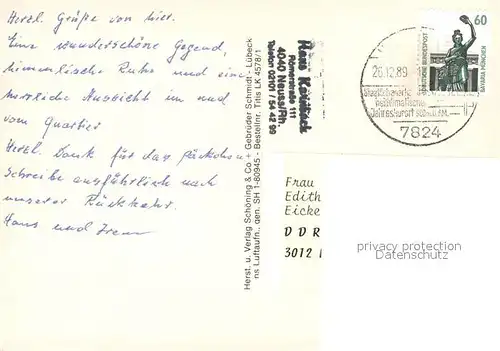 Herzl. Grüße von hier.
Eine wunderschöne Gegend,
himmlische Ruhe und eine
herrliche Aussicht im und
vom Quartier
Herzl. Dank für das Päckchen
Schreibe ausführlich nach
unserer Rückkehr.
Hans und
Herst. u. Verlag Schöning & Co + Gebrüder Schmidt - Lübeck
ns Luftaufn.. gen. SH 1-80945 - Bestellnr. Titis LK 4578/1
Hans
Römerstraße 111
4040 Neuss/Rh.
Telefon 02101 / 54 42 99
26.12.89
heilklimatischer
Jahreskurort
7824
60
DEUTSCHE BUNDESPOST
BAVARIA MÜNCHEN
Frau
Edith
Eicke
D D R
3012
privacy protection
Datenschutz